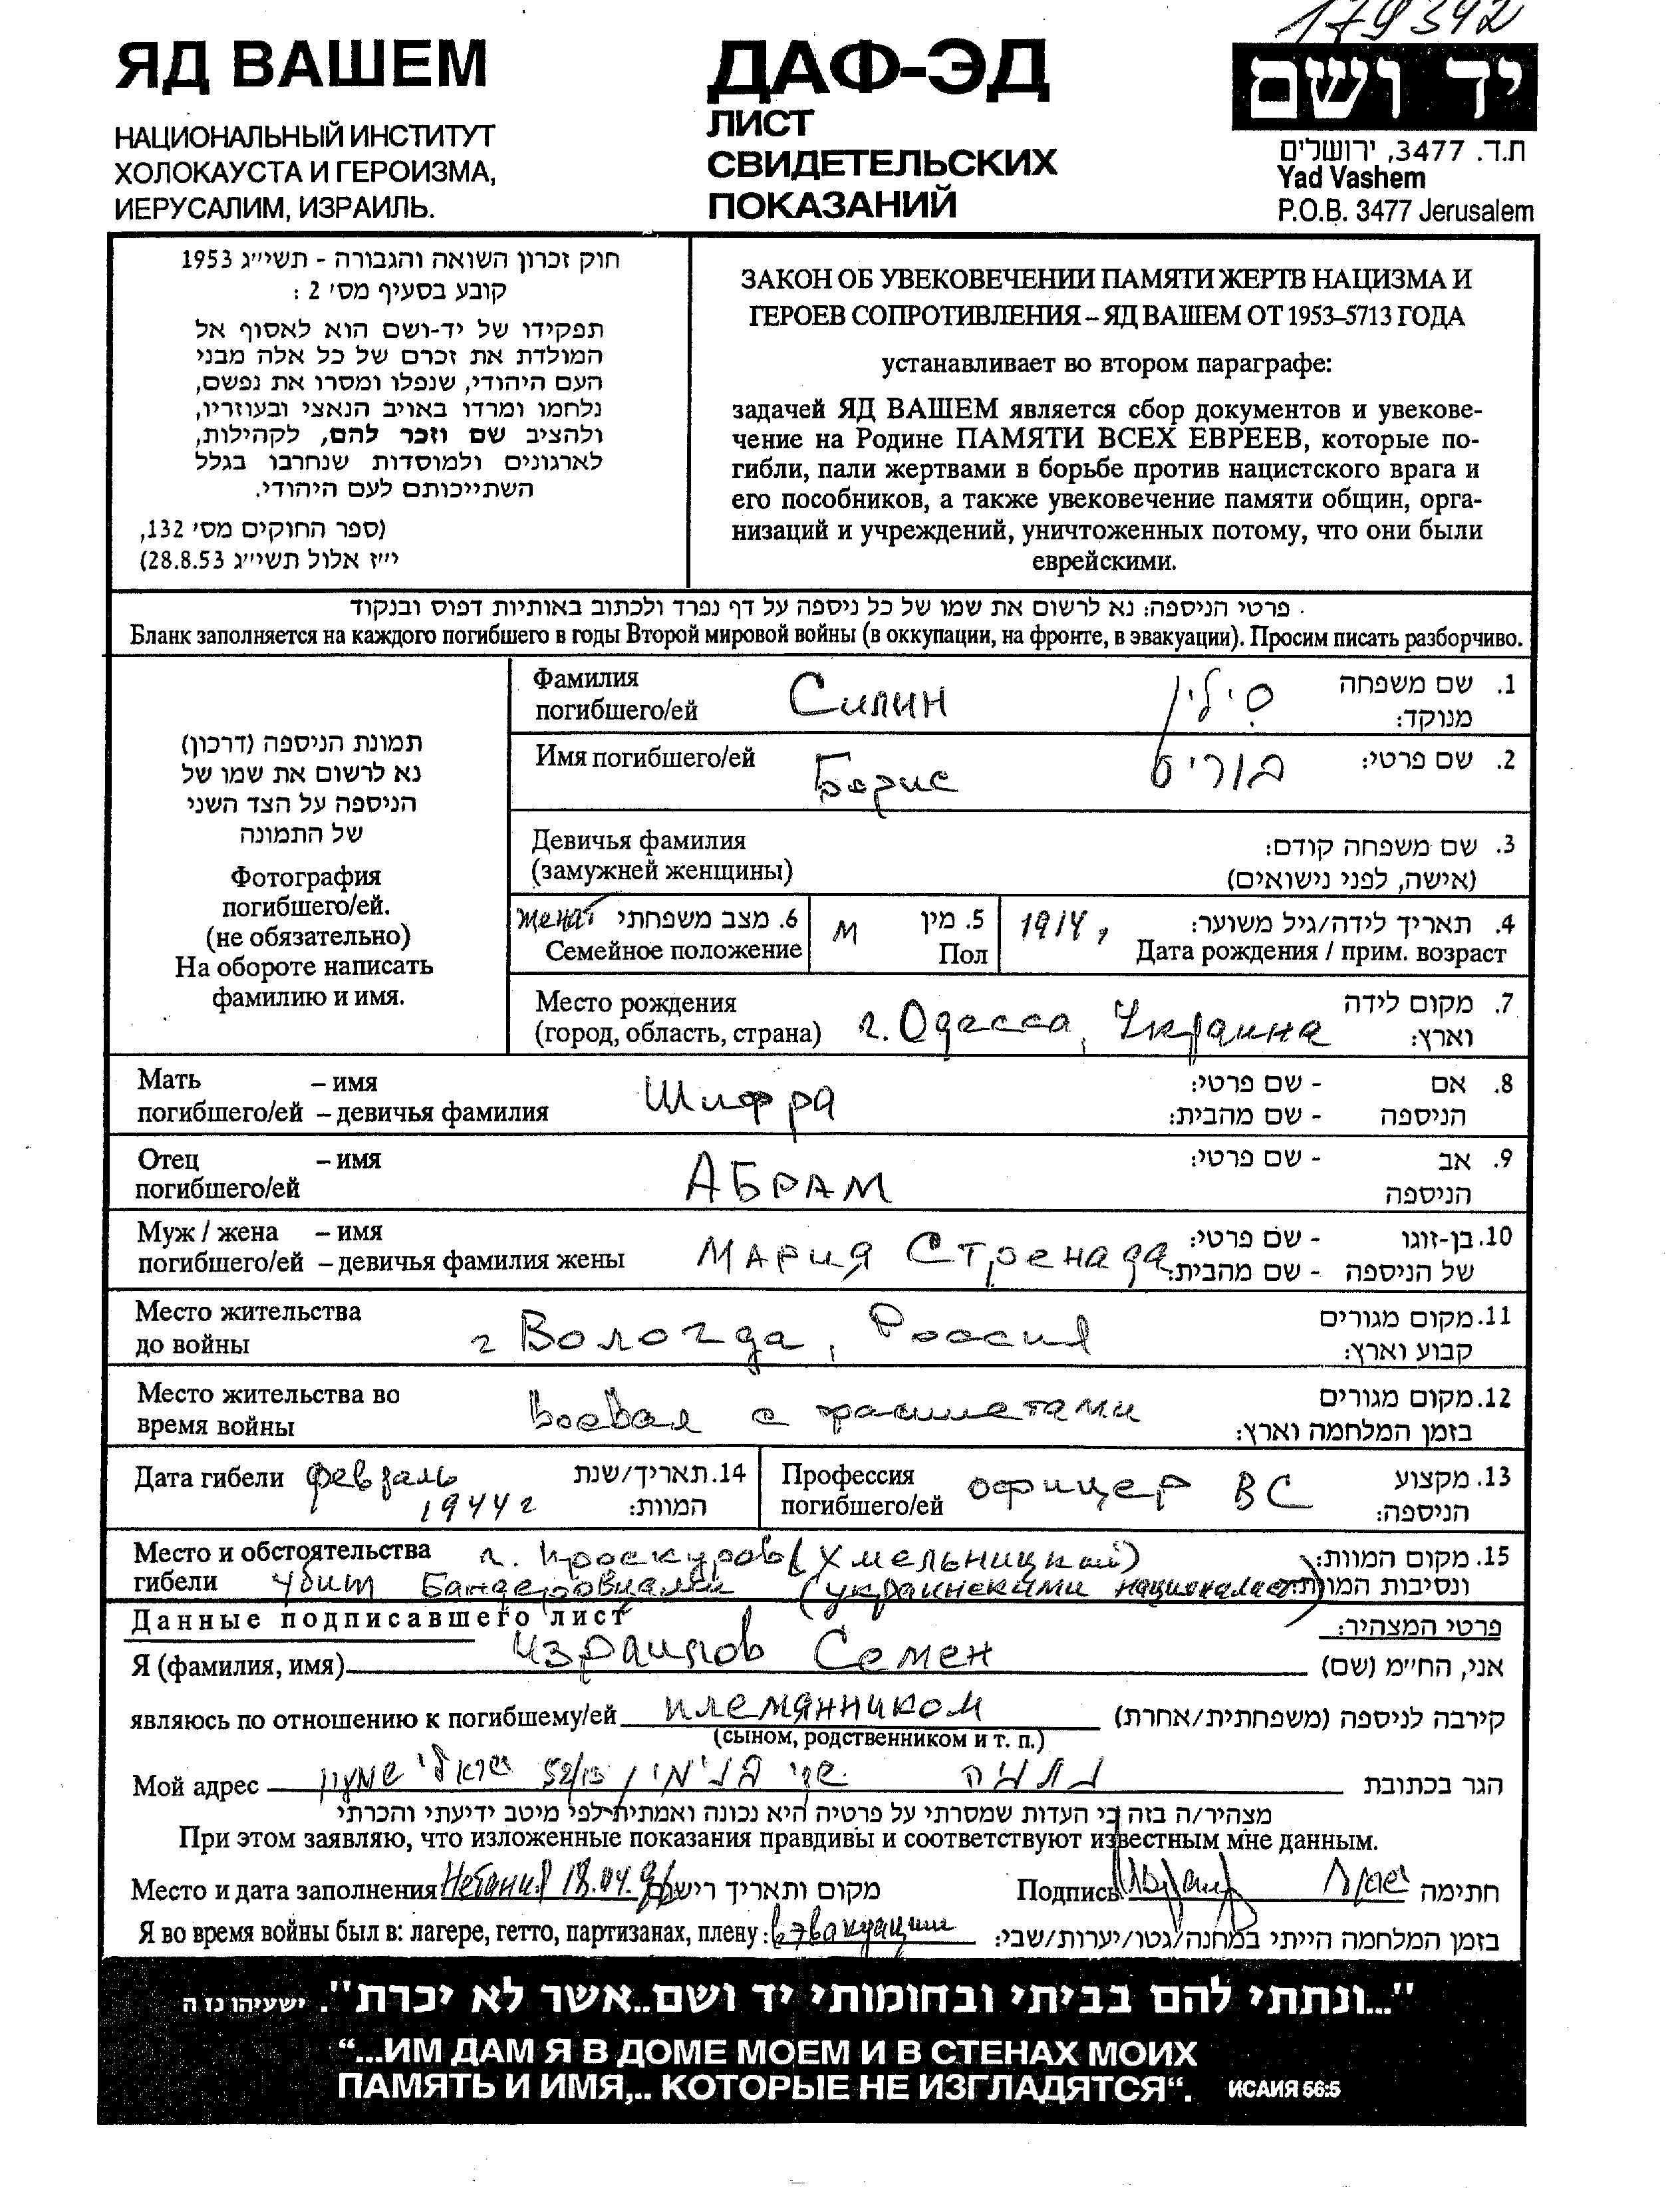 179392
ЯД ВАШЕМ
НАЦИОНАЛЬНЫЙ ИНСТИТУТ
ХОЛОКАУСТА И ГЕРОИЗМА,
ИЕРУСАЛИМ, ИЗРАИЛЬ.
ДАФ-ЭД
ЛИСТ
СВИДЕТЕЛЬСКИХ
ПОКАЗАНИЙ
יד ושם
ת.ד. 3477, ירושלים
Yad Vashem
P.O.B. 3477 Jerusalem
חוק זכרון השואה והגבורה - תשי״ג 1953
קובע בסעיף מס׳ 2 :
תפקידו של יד-ושם הוא לאסוף אל
המולדת את זכרם של כל אלה מבני
העם היהודי, שנפלו ומסרו את נפשם,
נלחמו ומרדו באויב הנאצי ובעוזריו,
ולהציב שם וזכר להם, לקהילות,
לארגונים ולמוסדות שנחרבו בגלל
השתייכותם לעם היהודי.
(ספר החוקים מס׳ 132,
י״ז אלול תשי״ג 28.8.53)
ЗАКОН ОБ УВЕКОВЕЧЕНИИ ПАМЯТИ ЖЕРТВ НАЦИЗМА И
ГЕРОЕВ СОПРОТИВЛЕНИЯ – ЯД ВАШЕМ ОТ 1953–5713 ГОДА
устанавливает во втором параграфе:
задачей ЯД ВАШЕМ является сбор документов и увекове-
чение на Родине ПАМЯТИ ВСЕХ ЕВРЕЕВ, которые по-
гибли, пали жертвами в борьбе против нацистского врага и
его пособников, а также увековечение памяти общин, орга-
низаций и учреждений, уничтоженных потому, что они были
еврейскими.
פרטי הניספה: נא לרשום את שמו של כל ניספה על דף נפרד ולכתוב באותיות דפוס ובנקוד .
Бланк заполняется на каждого погибшего в годы Второй мировой войны (в оккупации, на фронте, в эвакуации). Просим писать разборчиво.
תמונת הניספה (דרכון)
נא לרשום את שמו של
הניספה על הצד השני
של התמונה
Фотография
погибшего/ей.
(не обязательно)
На обороте написать
фамилию и имя.
Фамилия Силин סילין 1. שם משפחה
погибшего/ей מנוקד:
Имя погибшего/ей Борис בוריס 2. שם פרטי:
Девичья фамилия 3. שם משפחה קודם:
(замужней женщины) (אישה, לפני נישואים)
женат 6. מצב משפחתי М 5. מין 1914г 4. תאריך לידה/גיל משוער:
Семейное положение Пол Дата рождения / прим. возраст
Место рождения 7. מקום לידה
(город, область, страна) г. Одесса, Украина וארץ:
Мать – имя Шифра - שם פרטי: 8. אם
погибшего/ей – девичья фамилия - שם מהבית: הניספה
Отец – имя АБРАМ - שם פרטי: 9. אב
погибшего/ей הניספה
Муж / жена – имя - שם פרטי: 10. בן-זוגו
погибшего/ей – девичья фамилия жены Мария Стренада - שם מהבית: של הניספה
Место жительства 11. מקום מגורים
до войны г Вологда, Россия קבוע וארץ:
Место жительства во 12. מקום מגורים
время войны воевал с фашистами בזמן המלחמה וארץ:
Дата гибели февраль 14. תאריך/שנת Профессия офицер ВС 13. מקצוע
1944г המוות: погибшего/ей הניספה:
Место и обстоятельства г. Проскуров (Хмельницкий) 15. מקום המוות:
гибели Убит Бандеровцами (украинскими националист.) ונסיבות המוות:
Данные подписавшего лист פרטי המצהיר:
Я (фамилия, имя) Израилов Семен אני, הח״מ (שם)
являюсь по отношению к погибшему/ей племянником קירבה לניספה (משפחתית/אחרת)
(сыном, родственником и т. п.)
Мой адрес 52/13 שמעון הגר בכתובת
מצהיר/ה בזה כי העדות שמסרתי על פרטיה היא נכונה ואמתית לפי מיטב ידיעתי והכרתי
При этом заявляю, что изложенные показания правдивы и соответствуют известным мне данным.
Место и дата заполнения Нетания 18.04. מקום ותאריך רישום Подпись חתימה
Я во время войны был в: лагере, гетто, партизанах, плену: в эвакуации בזמן המלחמה הייתי במחנה/גטו/יערות/שבי:
"...ונתתי להם בביתי ובחומותי יד ושם..אשר לא יכרת". ישעיהו נז ה
“...ИМ ДАМ Я В ДОМЕ МОЕМ И В СТЕНАХ МОИХ
ПАМЯТЬ И ИМЯ,.. КОТОРЫЕ НЕ ИЗГЛАДЯТСЯ“. ИСАИЯ 56:5